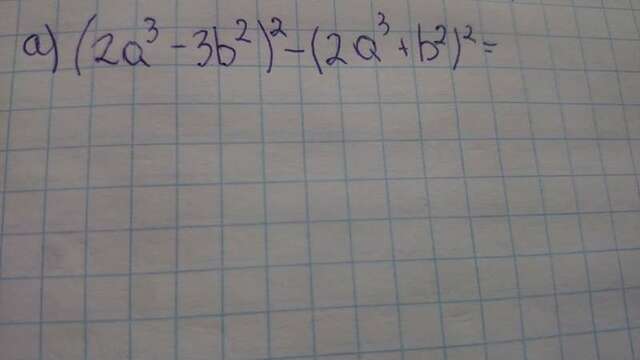 a) (2a³ - 3b²)² - (2a³ + b²)² =